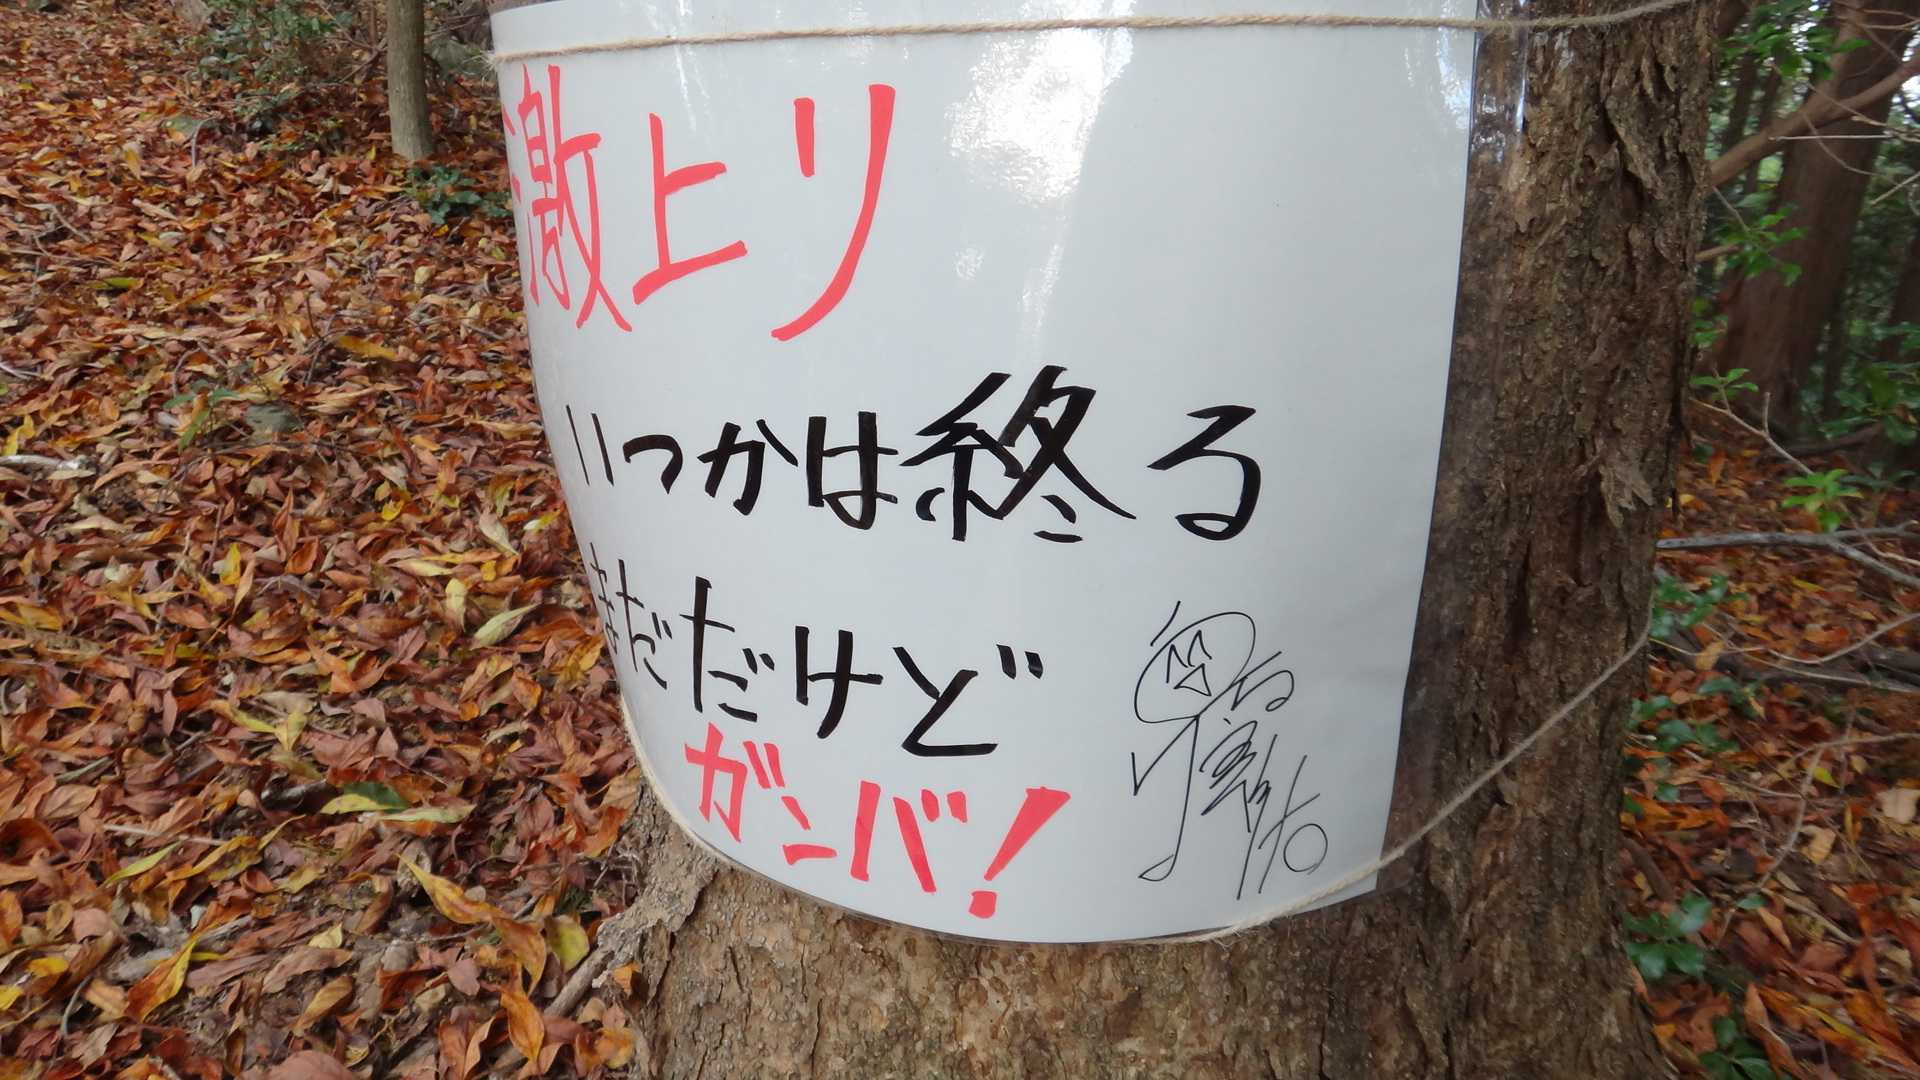 激上り
いつかは終る
まだだけど
ガンバ!